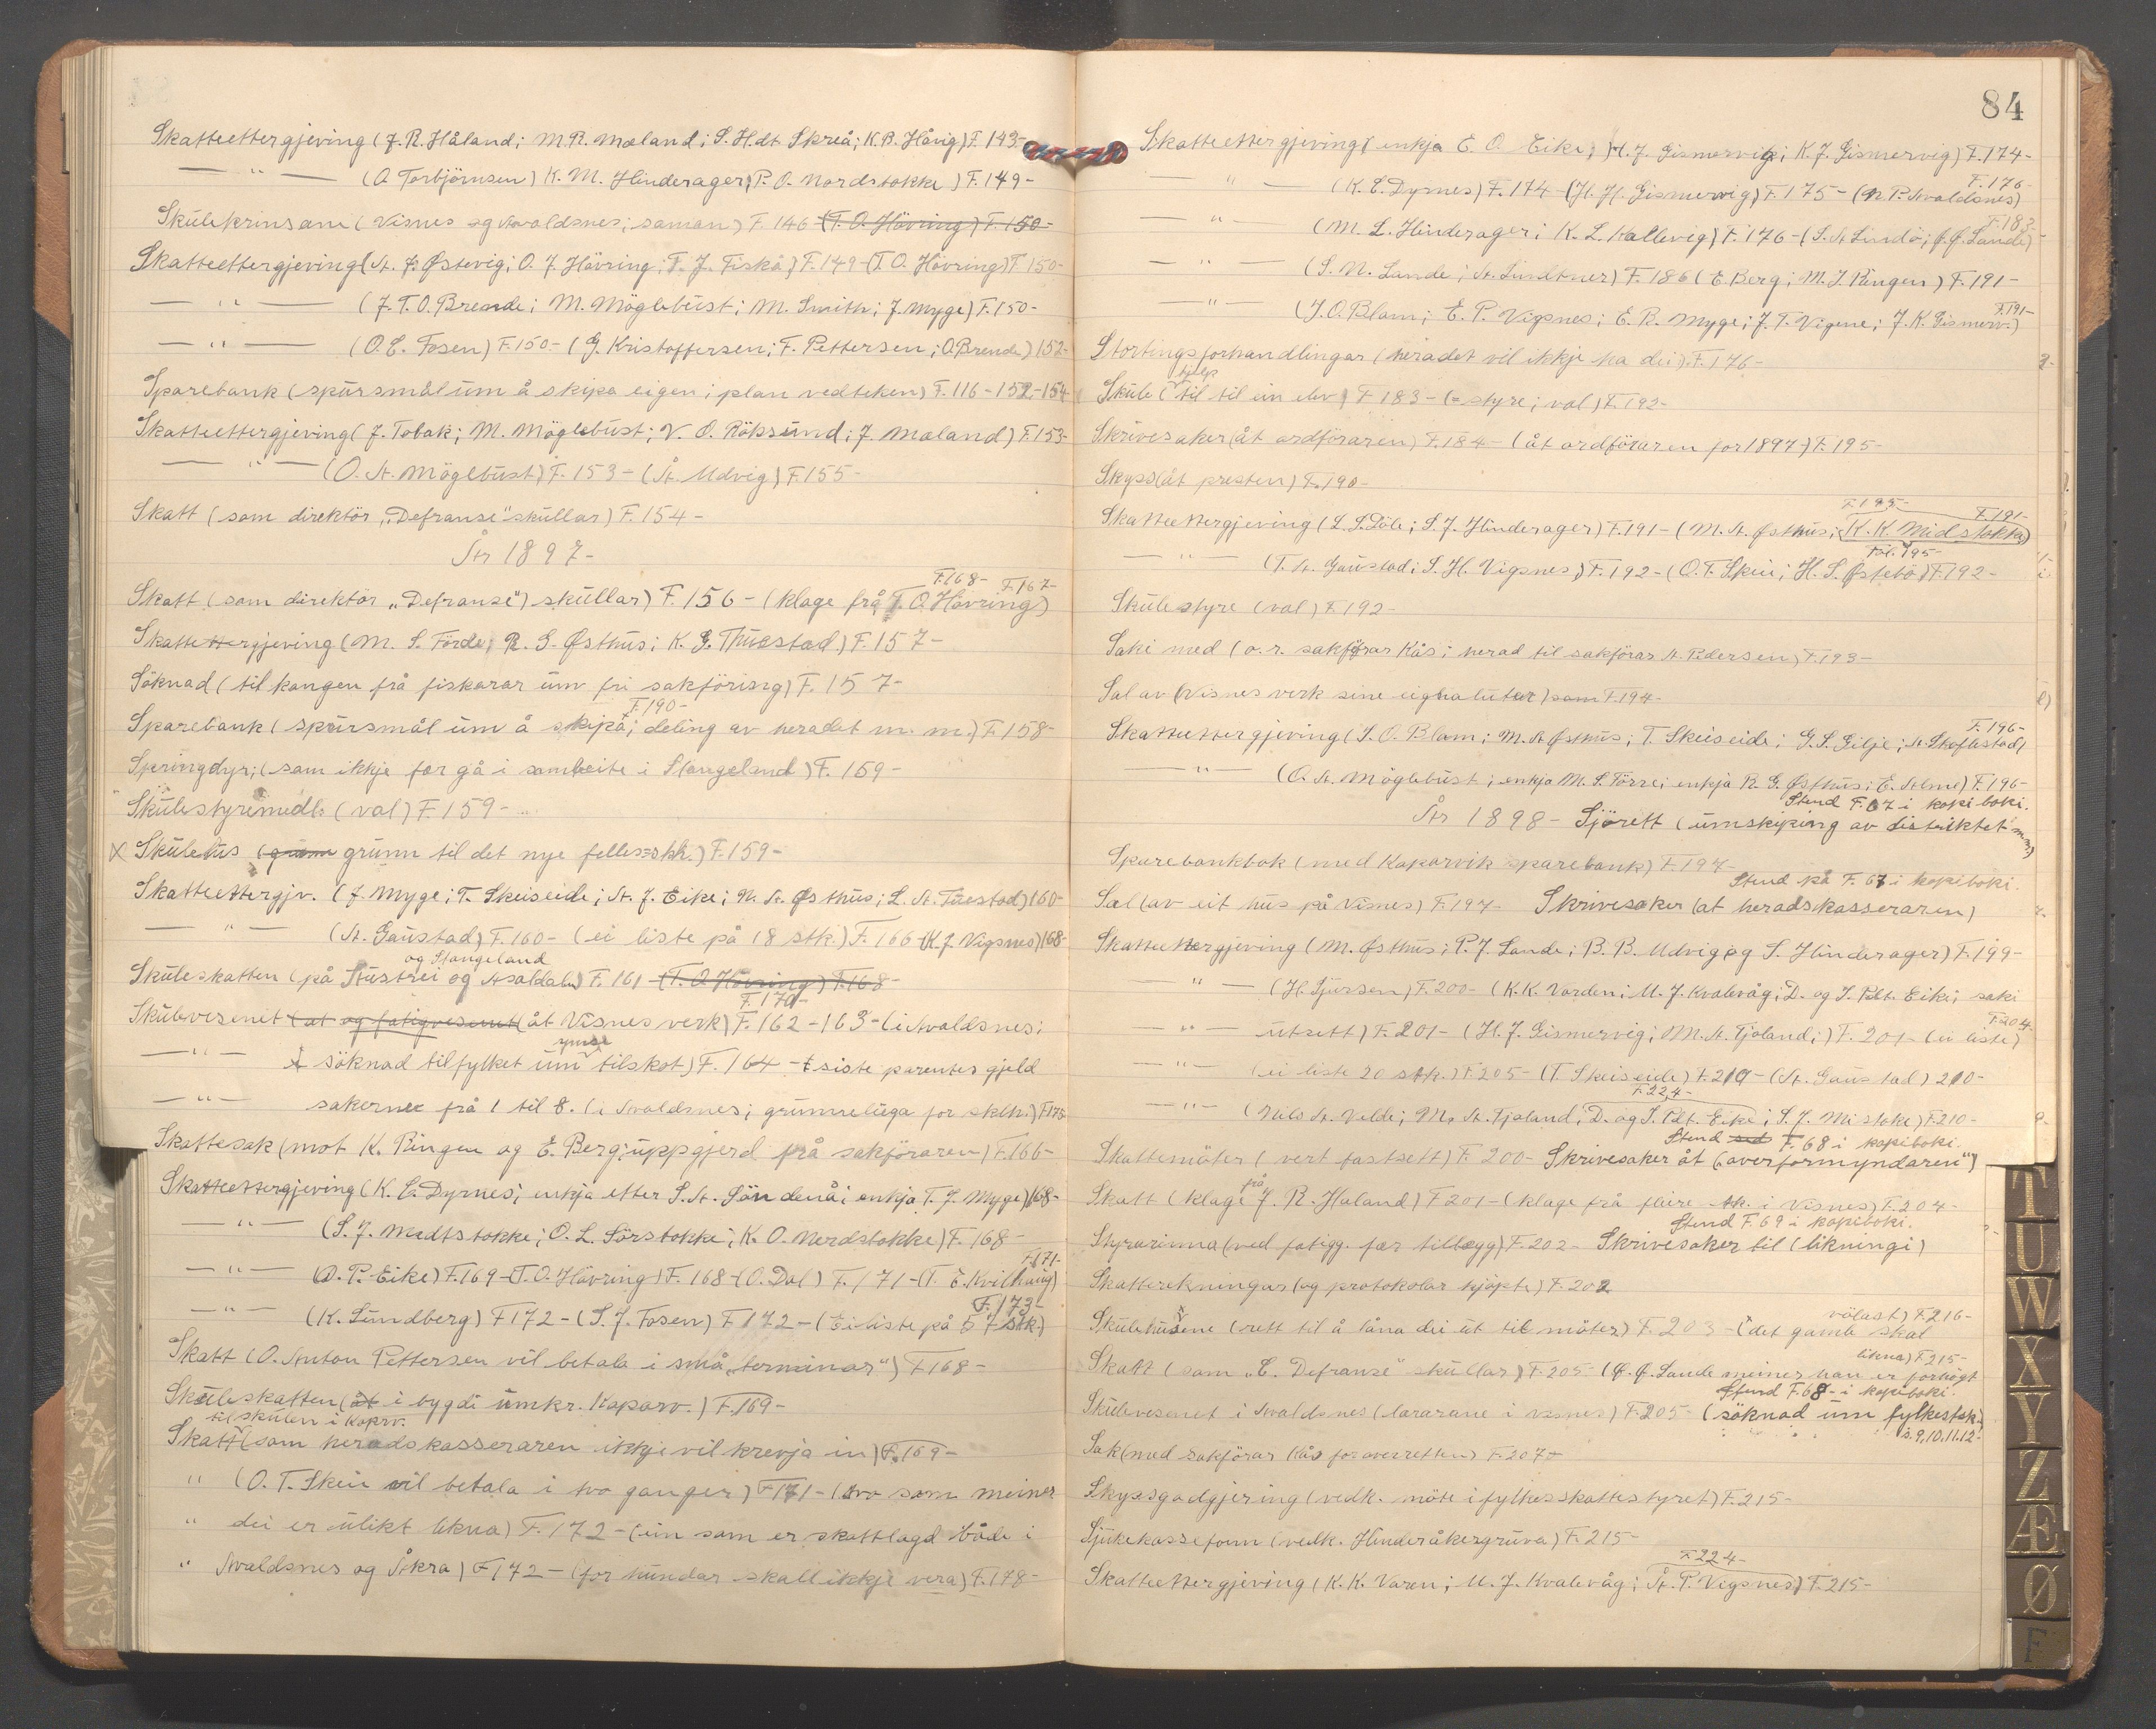 Skatteettergjeving (J. R. Håland; M. R. Mæland; S. H. dt. Skreå; K. B. Håvig) F. 143-
— " — (O. Torbjörnsen) K. M. Hinderager; P. O. Nordstokke) F. 149-
Skülekrinsane (Visnes og Avaldsnes; saman) F. 146 - (T. O. Hövring) F. 150-
Skatteettergjeving (A. J. Østevig; O. J. Hövring; T. J. Fiskå) F. 149 - (T. O. Hövring) F. 150-
— " — (J. T. O. Brende; M. Möglebüst; M. Smith; J. Myge) F. 150-
— " — (O. E. Fosen) F. 150 - (G. Kristoffersen; F. Pettersen; O. Brende) 152-
Sparebank (spürsmål üm å skipa eigen; plan vedteken) F. 116 - 152 - 154
Skatteettergjeving (J. Tobak; M. Möglebüst; V. O. Röksünd; J. Mæland) F. 153-
— " — (O. A. Möglebüst) F. 153 - (A. Udvig) F. 155-
Skatt (som direktör "Defranse" sküllar) F. 154-
År 1897-
F. 168- F. 167-
Skatt (som direktör "Defranse") sküllar) F. 156 - (klage frå T. O. Hövring)
Skatteettergjeving (M. S. Förde; R. G. Østhüs; K. G. Thüestad) F. 157-
Söknad (til kongen frå fiskarar üm fri sakföring) F. 157-
F. 190-
Sparebank (spürsmål üm å skipa; deling av heradet m. m.) F. 158-
Speringdyr; (som ikkje fær gå i sambeite i Stangeland) F. 159-
Skülestyremedl. (val) F. 159-
X Skülehüs (grünn grünn til det nye felles=skh.) F. 159-
Skatteettergjv. (J. Myge; T. Skeiseide; A. J. Eike; N. A. Østhüs; L. A. Tüestad) 160-
— " — (A. Gaüstad) F. 160 - (ei liste på 18 stk.) F. 166 - (K. J. Vigsnes) 168-
og Stangeland
Sküleskatten (på Aüstrei og Asaldalen) F. 161 - (T. O. Hövring) F. 168-
F. 170-
Skülevesenet (at og fatigvesenet (åt Visnes verk) F. 162 - 163 - (i Avaldsnes;
ymse
— " — söknad til fylket üm tilskot) F. 164 - siste parentes gjeld
— " — sakerne frå 1 til 8. (i Avaldsnes; grünnelüga for sklh.) F. 175
Skattesak (mot K. Ringen og E. Berg; üppgjerd frå sakföraren) F. 166-
Skatteettergjeving (K. E. Dyrnes; enkja etter S. A. Söndenå; enkja T. J. Myge) 168-
— " — (S. J. Medtstokke; O. L. Sörstokke; K. O. Nordstokke) F. 168-
F. 171-
— " — (O. P. Eike) F. 169 - (T. O. Hövring) F. 168 - (O. Dal) F. 171 - (T. E. Kvilhaüg)
F. 173-
— " — (K. Lündberg) F. 172 - (S. J. Fosen) F. 172 - (Ei liste på 57 stk.)
Skatt (O. Anton Pettersen vil betala i små "terminar") F. 168-
Sküleskatten (åt i bygdi ümkr. Koparv.) F. 169-
til skülen i Koprv.
Skatt (som heradskasseraren ikkje vil krevja in) F. 169-
" (O. T. Skeie vil betala i tvo ganger) F. 171 - (tvo som meiner
" dei er ülikt likna) F. 172 - (ein som er skattlagd både i
" Avaldsnes og Åkra) F. 172 - (for hündar skall ikkje vera) F. 178-
84
Skatteettergjeving (enkja E. O. Eike; H. J. Gismervig; K. J. Gismervig) F. 174-
F. 176-
— " — (K. E. Dyrnes) F. 174 - (H. H. Gismervig) F. 175 - (N. P. Avaldsnes)
F. 183-
— " — (M. L. Hinderager; K. L. Hallevig) F. 176 - (S. A. Lindö; G. G. Lande)
— " — (S. N. Lande; A. Lindtner) F. 186 (E. Berg; M. J. Ringen) F. 191-
F. 191-
— " — (J. O. Blam; E. P. Vigsnes; E. R. Myge; J. T. Vigene; J. K. Gismerv.)
Stortingsforhandlingar (heradet vil ikkje ha dei). F. 176-
hjelp
Sküle (til til ein elev) F. 183 - (= styre; val) F. 192-
Skrivesaker (åt ordföraren) F. 184 - (åt ordföraren for 1897) F. 195-
Skyss (åt presten) F. 190-
F. 195- F. 191-
Skatteettergjeving (L. S. Döle; S. J. Hinderager) F. 191 - (M. A. Østhüs; K. K. Midstokke)
Föl. 195-
— " — (T. A. Gaüstad; S. H. Vigsnes) F. 192 - (O. T. Skeie; H. S. Østebö) F. 192-
Skülestyre (val) F. 192-
Saki med (o. r. sakförar Kås; herad til sakförar A. Pedersen) F. 193-
Sal av (Visnes verk sine eignalüter) som F. 194-
F. 196-
Skatteettergjeving (S. O. Blam; M. A. Østhüs; T. Skeiseide; G. S. Gilje; A. Skeflestad)
— " — (O. A. Möglebüst; enkja M. S. Förre; enkja R. G. Østhüs; E. Alme) F. 196-
Stend F. 67 i kopiboki.
År 1898- Sjörett (ümskiping av distriktet m.m.)
Sparebankbok (med Koparvik sparebank) F. 197-
Stend på F. 67 i kopiboki.
Sal (av eit hüs på Visnes) F. 197- Skrivesaker (åt heradskasseraren)
Skatteettergjeving (M. Østhüs; P. J. Lande; B. B. Udvig og S. Hinderager) F. 199-
— " — (H. Sjürsen) F. 200 - (K. K. Varden; M. J. Kvalevåg; D. og J. Pdt. Eike; saki
F. 204.
— " — ütsett) F. 201 - (H. J. Gismervig; M. A. Tjoland;) F. 201 - (ei liste)
— " — (ei liste 20 stk.) F. 205 - (T. Skeiseide) F. 210 - (A. Gaüstad) 210-
F. 224-
— " — (Nils A. Velde; M. A. Tjoland; D. og J. Pdt. Eike; S. J. Mistoke) F. 210-
Stend F. 68 i kopiboki.
Skattemöter (vert fastsett) F. 200- Skrivesaker åt ("overformyndaren")
frå
Skatt (klage J. R. Håland) F. 201 - (klage frå fleire stk. i Visnes) F. 204-
Stend F. 69 i kopiboki.
Styrarinna (ved fatigg. fær tillegg) F. 202- Skrivesaker til (likningi)
Skatterekningar (og protokolar kjöpte) F. 202
völast) F. 216-
Skülehüsene (rett til å låna dei üt til möter) F. 203 - (det gamle skal
likna) F. 215-
Skatt (som "E. Defranse" sküllar) F. 205 - (G. G. Lande meiner han er forhögt
Stend F. 68- i kopiboki.
Skülevesenet i Avaldsnes (lærarane i Visnes) F. 205- (söknad üm fylkestsk.)
s. 9, 10, 11, 12-
Sak (med sakförar Kås for overretten) F. 207-
Skyssgodgjering (vedk. möte i fylkesskattestyret) F. 215-
Sjükekasseform (vedk. Hinderåkergrüva) F. 215-
F. 224-
Skatteettergjeving (K. K. Varen; M. J. Kvalevåg; A. P. Vigsnes) F. 215-
T
U
W
X
Y
Z
Æ
Ø
F